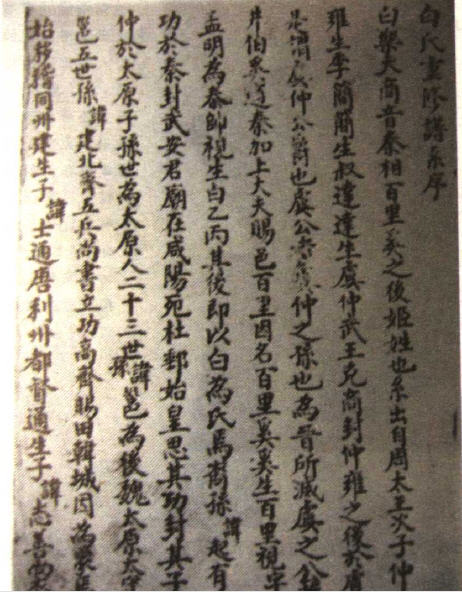 白氏重修譜系序
白秦相百里奚之後姬姓也系出自周太王次子仲
雍生季簡簡生叔達達生虞仲武王克商封仲雍之後於虞
仲公爵也虞公者虞仲之孫也為晉所滅虞之公
井伯奚適秦加上大夫賜邑百里因名百里奚奚生百里視字
孟明為秦帥視生白乙丙其後即以白為氏焉裔孫諱起有
功於秦封武安君廟在咸陽苑杜郵始皇思其功封其子
仲於太原子孫世為太原人二十三世孫諱邕為後魏太原太守
邕五世孫諱建北齊五兵尚書立功高齊賜田韓城因為家
始移籍同州建生子諱士通唐利州都督通生子諱志善尚衣